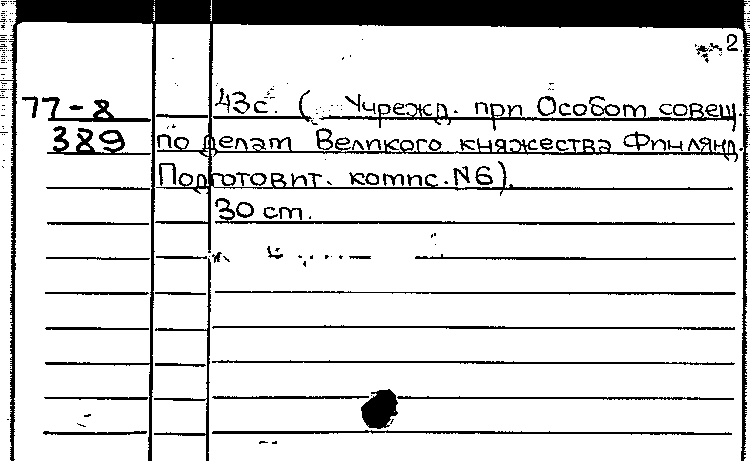 2
77-8 43с. ( Учрежд. при Особом совещ.
389 по делам Великого княжества Финлянд.
Подготовит. комис. N6).
30 см.